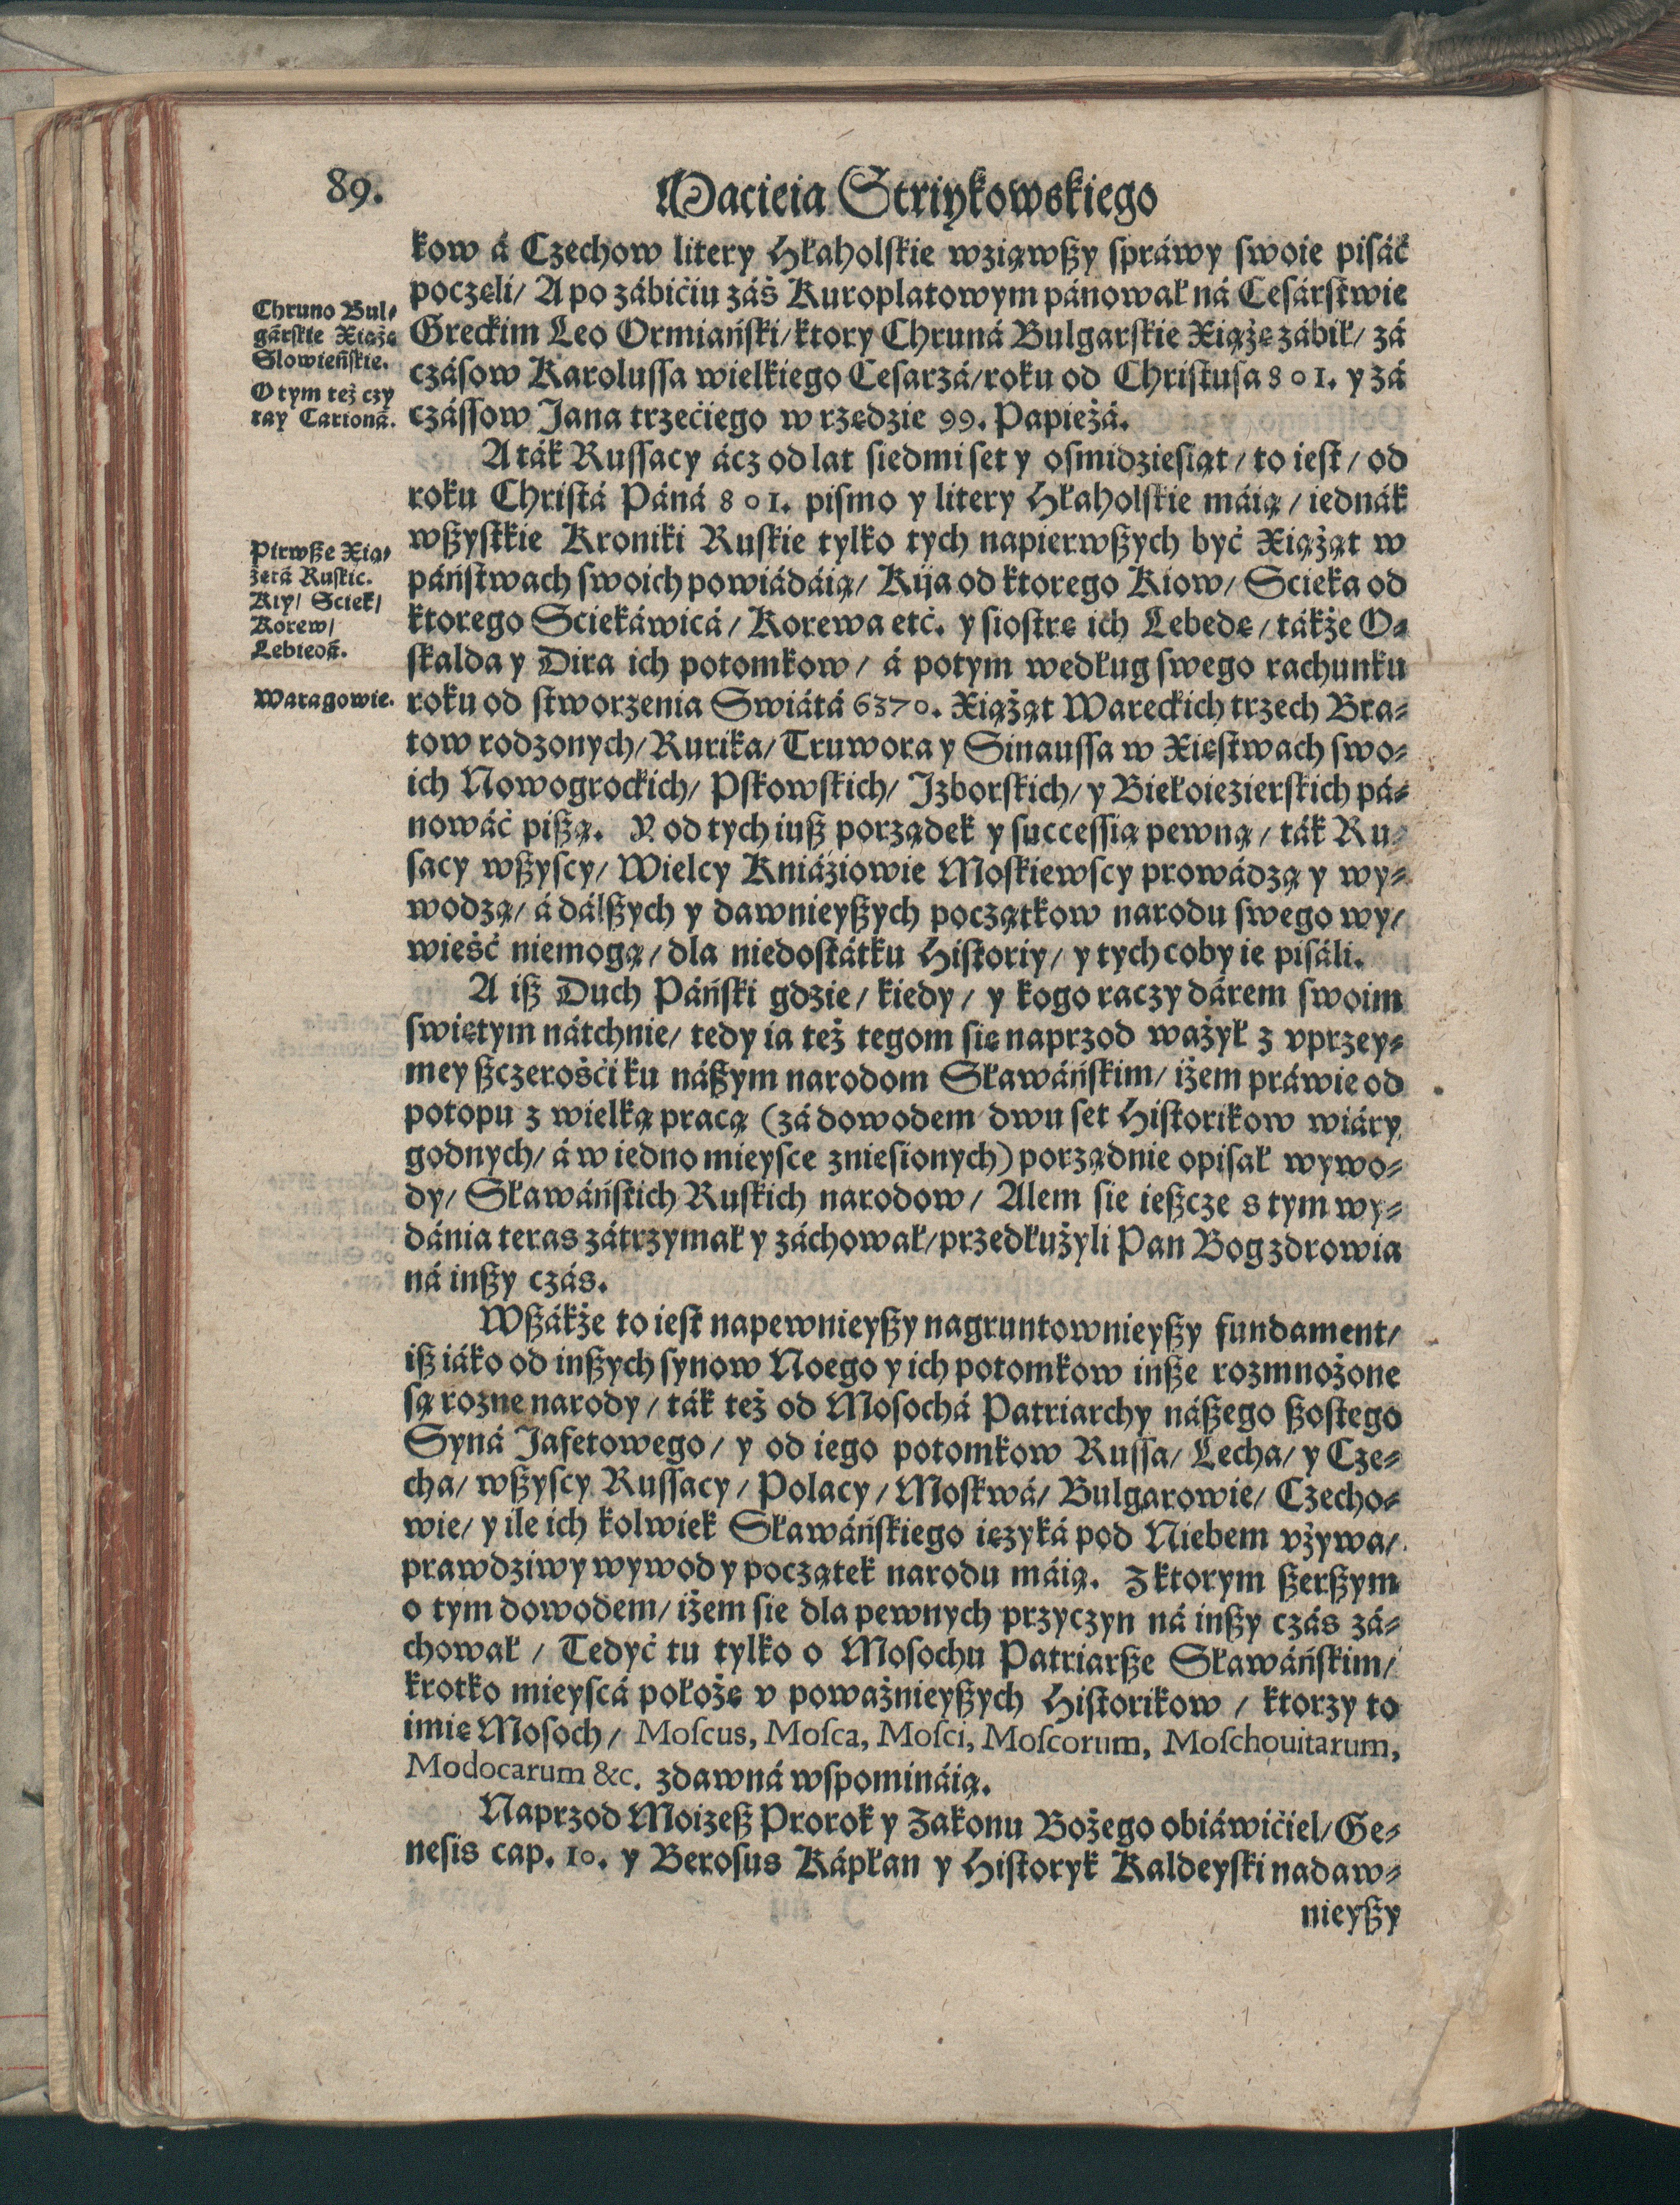 89.
Macieia Striykowskiego
kow á Czechow litery Hłaholskie wziąwszy spráwy swoie pisáć
poczęli/ A po zábićiu záś Kuroplatowym pánował ná Cesárstwie
Greckim Leo Ormiański/ ktory Chruná Bulgarskie Xiążę zábił/ zá
czásow Karolussa wielkiego Cesarzá/ roku od Christusa 801. y zá
czássow Jana trzećiego w rzędzie 99. Papieżá.
Chruno Bul⸗
gárskie Xiążę
Slowieńskie.
O tym też czy
tay Carioná.
A ták Russacy ácz od lat siedmi set y osmidziesiąt/ to iest/ od
roku Christá Páná 801. pismo y litery Hłaholskie máią/ iednák
wszystkie Kroniki Ruskie tylko tych napierwszych być Xiążąt w
páństwach swoich powiádáią/ Kija od ktorego Kiow/ Scieka od
ktorego Sciekáwicá/ Korewa etć. y siostrę ich Lebedę/ tákże O⸗
skalda y Dira ich potomkow/ á potym według swego rachunku
roku od stworzenia Swiátá 6370. Xiążąt Wareckich trzech Bra⸗
tow rodzonych/ Rurika/ Truwora y Sinaussa w Xięstwach swo⸗
ich Nowogrockich/ Pskowskich/ Izborskich/ y Biełoiezierskich pá⸗
nowáć piszą. Y od tych iusz porządek y successią pewną/ ták Ru⸗
sacy wszyscy/ Wielcy Kniáźiowie Moskiewscy prowádzą y wy⸗
wodzą/ á dálszych y dawnieyszych początkow narodu swego wy/
wieść niemogą/ dla niedostátku Historiy/ y tych coby ie pisáli.
Pirwsze Xią⸗
żętá Ruskie.
Kiy/ Sciek/
Korew/
Lebieoá.
Waragowie.
A isz Duch Páński gdzie/ kiedy/ y kogo raczy dárem swoim
swiętym nátchnie/ tedy ia też tegom się naprzod ważył z vprzey⸗
mey szczerośći ku nászym narodom Sławáńskim/ iżem práwie od
potopu z wielką pracą (zá dowodem dwu set Historikow wiáry
godnych/ á w iedno mieysce zniesionych) porządnie opisał wywo⸗
dy/ Sławáńskich Ruskich narodow/ Alem sie ieszcze s tym wy⸗
dánia teras zátrzymał y záchował/ przedłużyli Pan Bog zdrowia
ná inszy czás.
Wszákże to iest napewnieyszy nagruntownieyszy fundament/
isz iáko od inszych synow Noego y ich potomkow insze rozmnożone
są rozne narody/ ták też od Mosochá Patriarchy nászego szostego
Syná Jafetowego/ y od iego potomkow Russa/ Lecha/ y Cze⸗
cha/ wszyscy Russacy/ Polacy/ Moskwá/ Bulgarowie/ Czecho⸗
wie/ y ile ich kolwiek Sławáńskiego ięzyká pod Niebem vżywa/
prawdziwy wywod y początek narodu máią. Z ktorym szerszym
o tym dowodem/ iżem sie dla pewnych przyczyn ná inszy czás zá⸗
chował/ Tedyć tu tylko o Mosochu Patriarsze Sławáńskim/
krotko mieyscá położę v poważnieyszych Historikow/ ktorzy to
imię Mosoch/ Moscus, Mosca, Mosci, Moscorum, Moschouitarum,
Modocarum &c. zdawná wspomináią.
Naprzod Moizesz Prorok y Zakonu Bożego obiáwićiel/ Ge⸗
nesis cap. 10. y Berosus Kápłan y Historyk Kaldeyski nadaw⸗
nieyszy